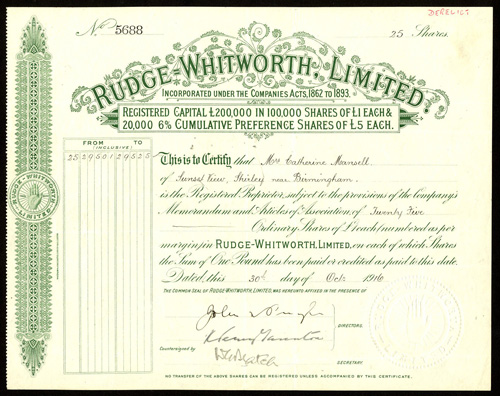 No 5688
25 Shares.
RUDGE-WHITWORTH, LIMITED.
INCORPORATED UNDER THE COMPANIES ACTS, 1862 TO 1893.
REGISTERED CAPITAL £200,000 IN 100,000 SHARES OF £1 EACH &
20,000 6% CUMULATIVE PREFERENCE SHARES OF £5 EACH.
FROM TO
(INCLUSIVE)
RUDGE WHITWORTH
LIMITED
This is to Certify that Mrs Catherine Mansell.
of Sunset View, Shirley near Birmingham.
is the Registered Proprietor, subject to the provisions of the Company's
Memorandum and Articles of Association, of Twenty Five
Ordinary Shares of £1 each (numbered as per
margin) in RUDGE-WHITWORTH, LIMITED, on each of which Shares
the Sum of One Pound has been paid or credited as paid to this date.
Dated, this 30th day of Oct. 19
THE COMMON SEAL OF RUDGE-WHITWORTH, LIMITED, WAS HEREUNTO AFFIXED IN THE PRESENCE OF
John
DIRECTORS.
Countersigned by
SECRETARY.
NO TRANSFER OF THE ABOVE SHARES CAN BE REGISTERED UNLESS ACCOMPANIED BY THIS CERTIFICATE.